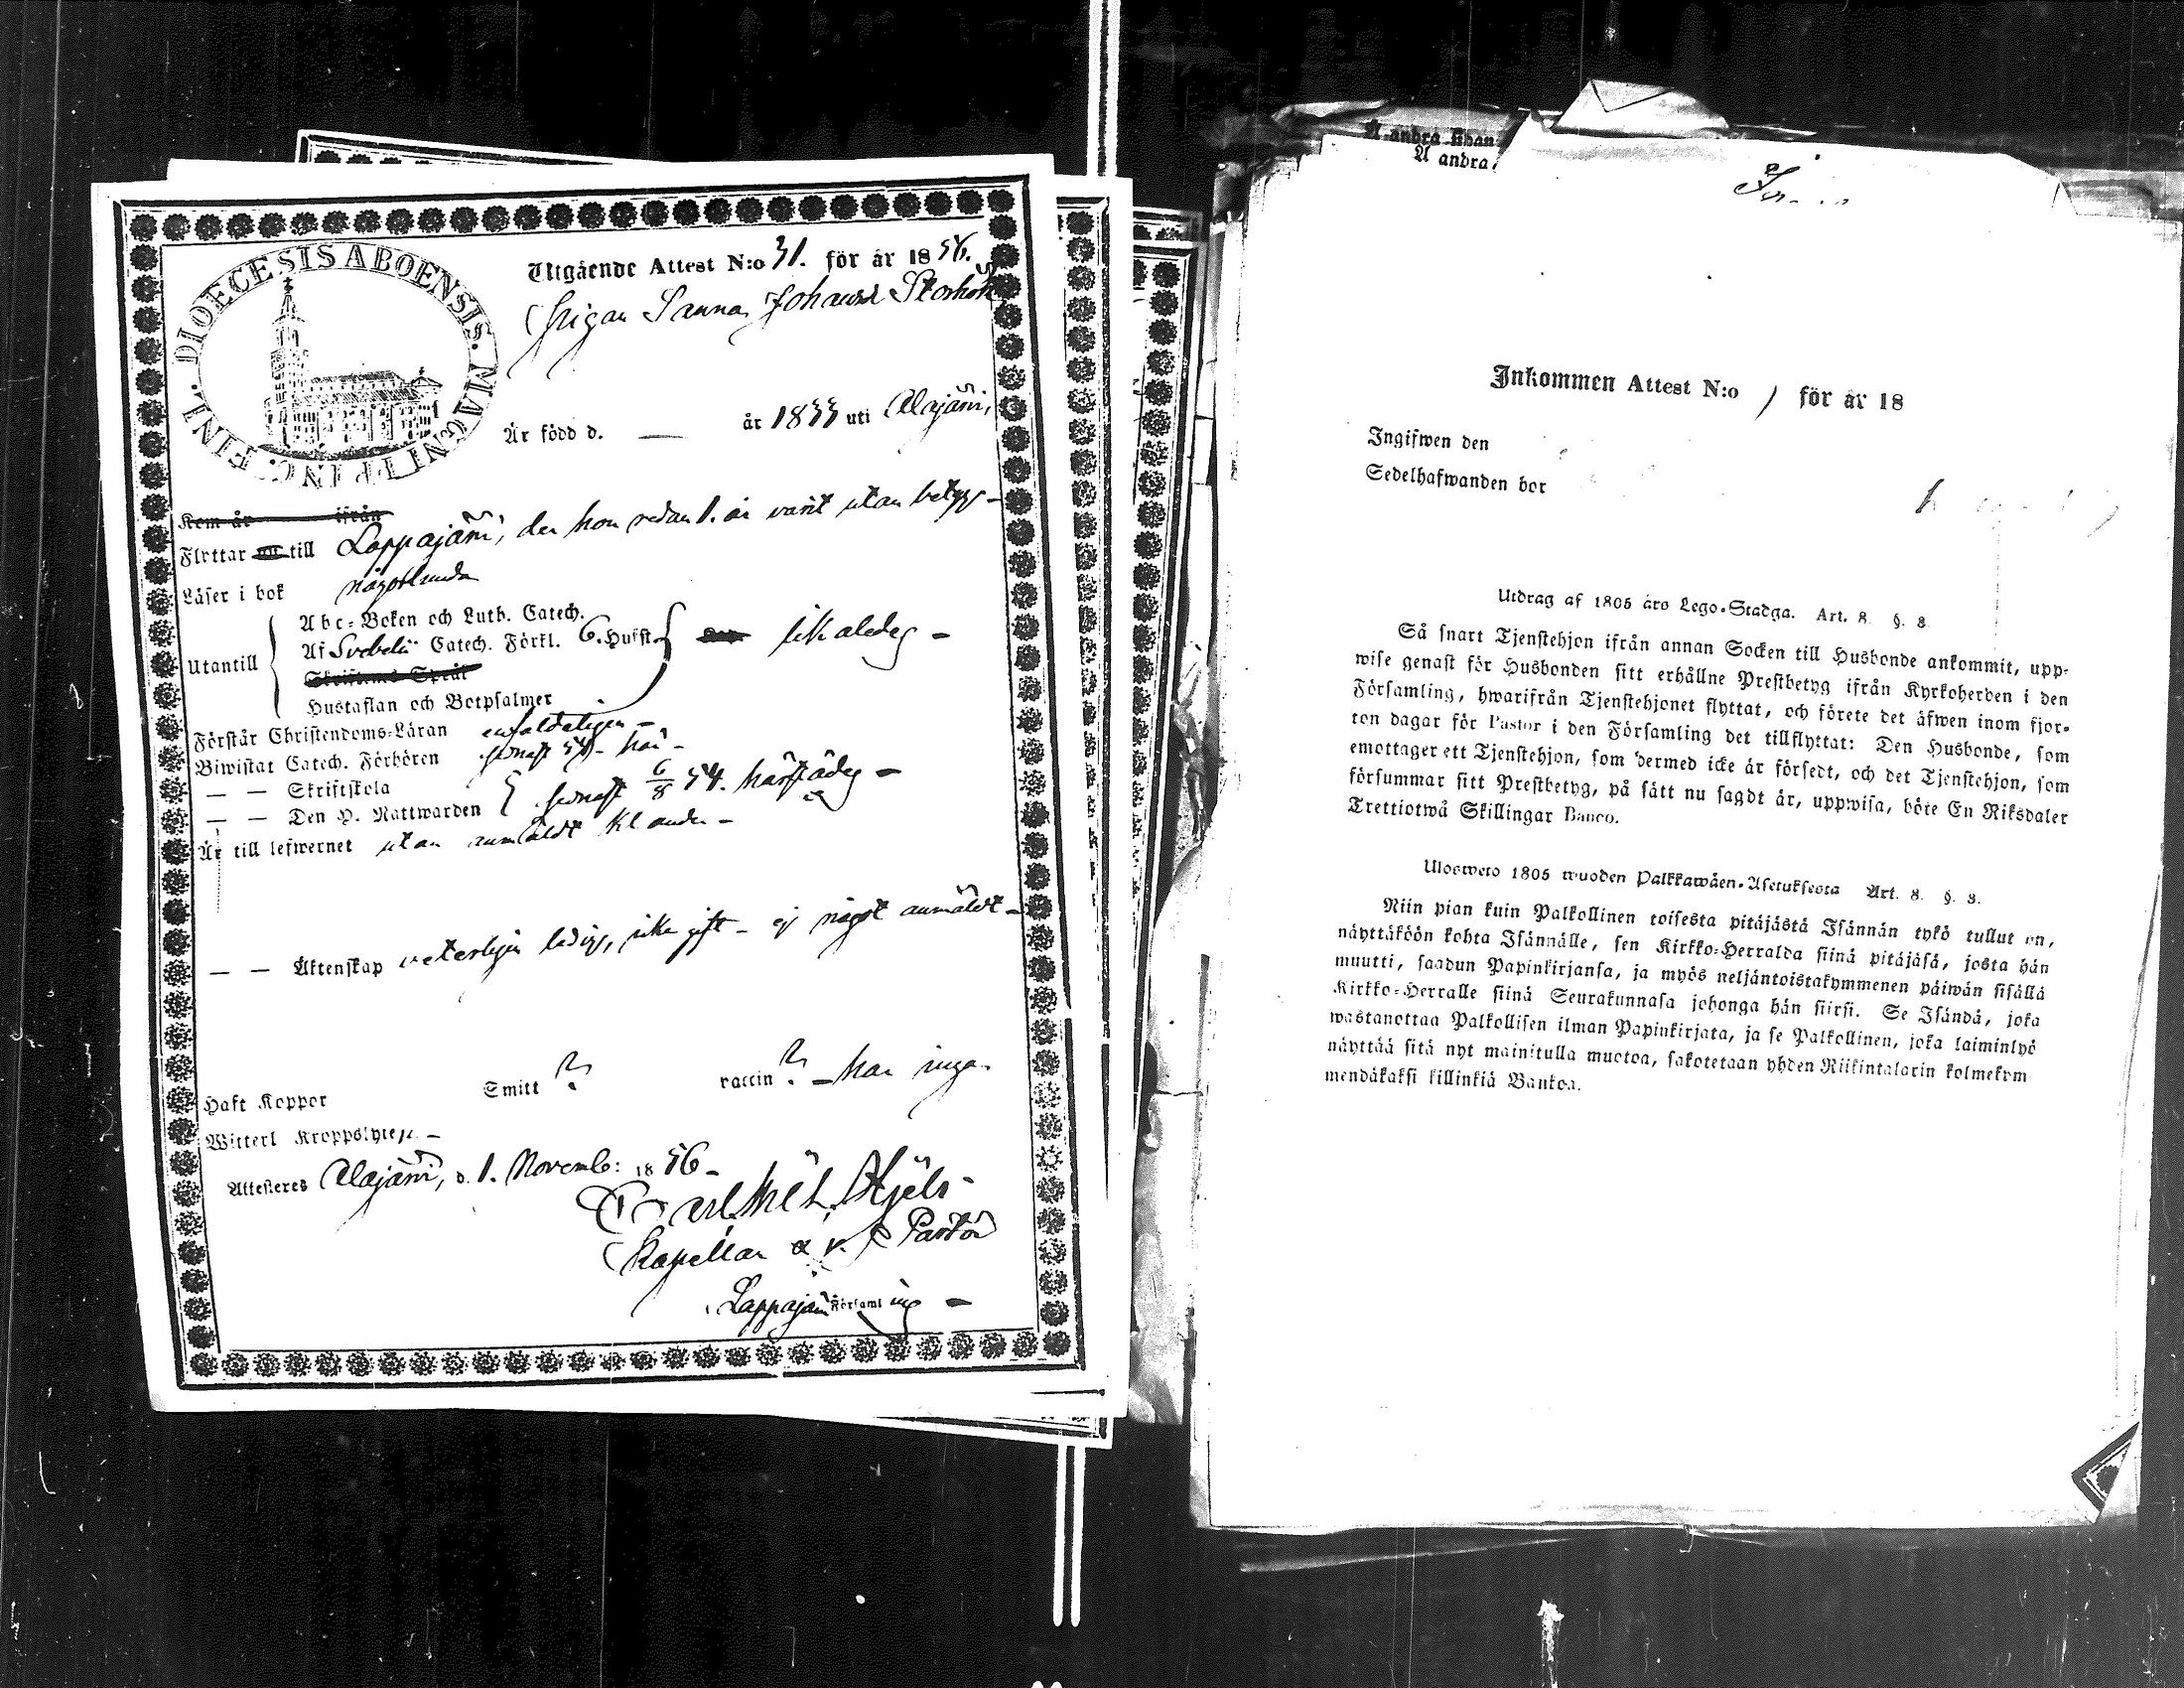 DIOECESIS ABOENSIS. MAGNI PRINC. FINL.
Utgående Attest N:o 31. för år 1856.
Pigan Sanna Johansd Storholm
Är född d. — år 1833 uti Alajärvi,
Kom år ifrån
Flyttar nu till Lappajärvi, der hon redan 1. år varit utan betyg –
Läser i bok någorlunda
Utantill
Abc-Boken och Luth. Catech.
Af Svebelii Catech. Förkl. 6. Hufst. likaledes –
Skriftenes Språk
Hustaflan och Botpsalmer
Förstår Christendoms-Läran enfaldeligen –
Biwistat Catech. Förhören senast 54 – här –
— — Skriftskola
— — Den H. Nattwarden senast 6/8 54. härstädes –
Är till lefwernet utan anmäldt klander –
— — Äktenskap veterligen ledig, icke gift – ej något anmäldt –
Haft Koppor Smitt ? vaccin ? – har inga
Witterl Kroppslyte –
Attesteras Alajärvi, d. 1. Novemb: 1856 –
Carl
Kapellan & v. Pastor
Lappajärvi Församling –
Å andra sidan
Å andra
Inkommen Attest N:o för år 18
Ingifwen den
Sedelhafwanden bor
Utdrag af 1805 års Lego-Stadga. Art. 8. §. 8.
Så snart Tjenstehjon ifrån annan Socken till Husbonde ankommit, upp-
wise genast för Husbonden sitt erhållne Prestbetyg ifrån Kyrkoherden i den
Församling, hwarifrån Tjenstehjonet flyttat, och förete det äfwen inom fjor-
ton dagar för Pastor i den Församling det tillflyttat: Den Husbonde, som
emottager ett Tjenstehjon, som dermed icke är försedt, och det Tjenstehjon, som
försummar sitt Prestbetyg, på sätt nu sagdt är, uppwisa, böte En Riksdaler
Trettiotwå Skillingar Banco.
Ulosweto 1805 wuoden Palkkawäen-Asetuksesta Art. 8. §. 8.
Niin pian kuin Palkollinen toisesta pitäjästä Isännän tykö tullut on,
näyttäköön kohta Isännälle, sen Kirkko-Herralda siinä pitäjäsä, josta hän
muutti, saadun Papinkirjansa, ja myös neljäntoistakymmenen päiwän sisällä
Kirkko-Herralle siinä Seurakunnasa johonga hän siirsi. Se Isändä, joka
wastanottaa Palkollisen ilman Papinkirjata, ja se Palkollinen, joka laiminlyö
näyttää sitä nyt mainitulla muotoa, sakotetaan yhden Riikintalarin kolmekym
mendäkaksi killinkiä Bankoa.